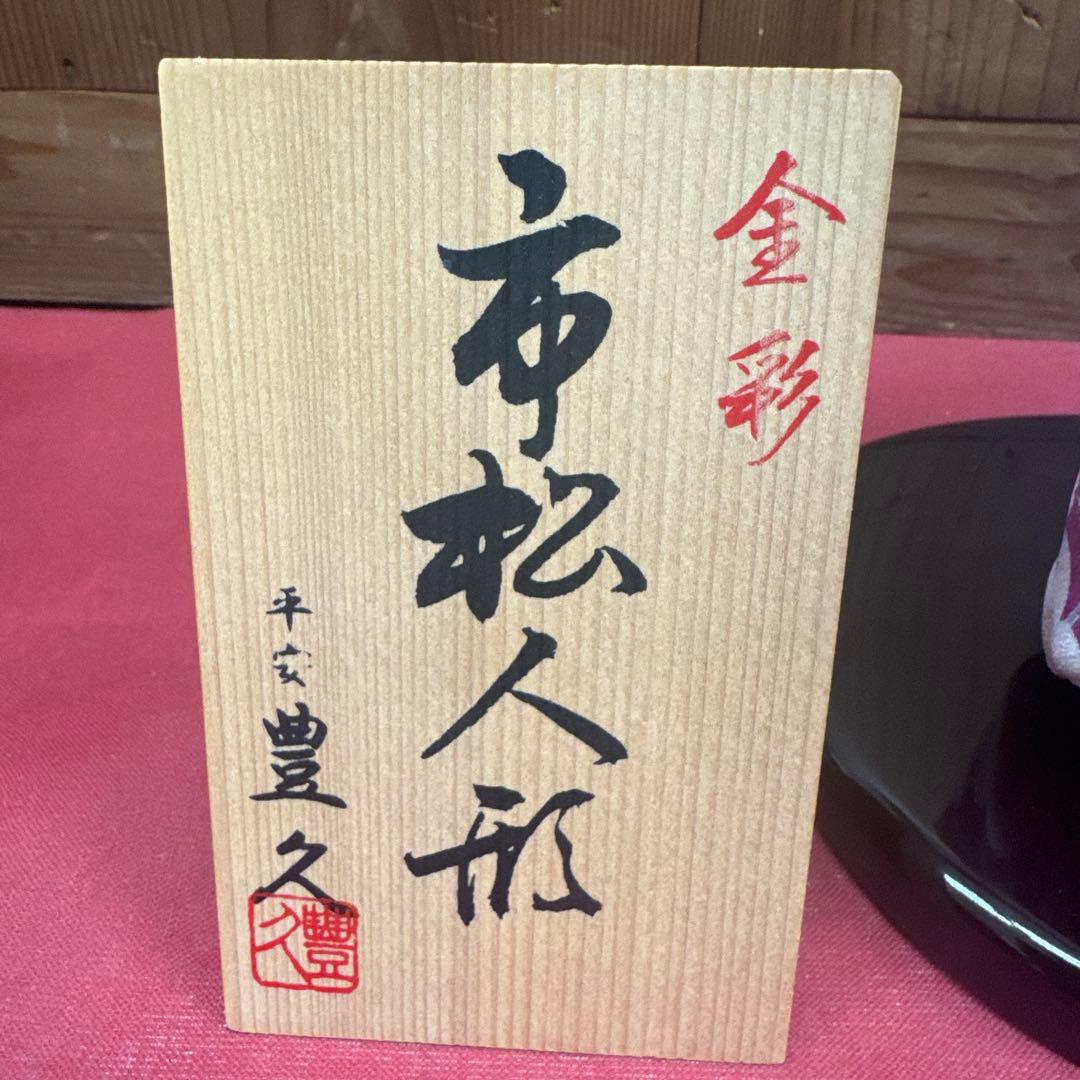 金彩
市松人形
平安豊久
豊久